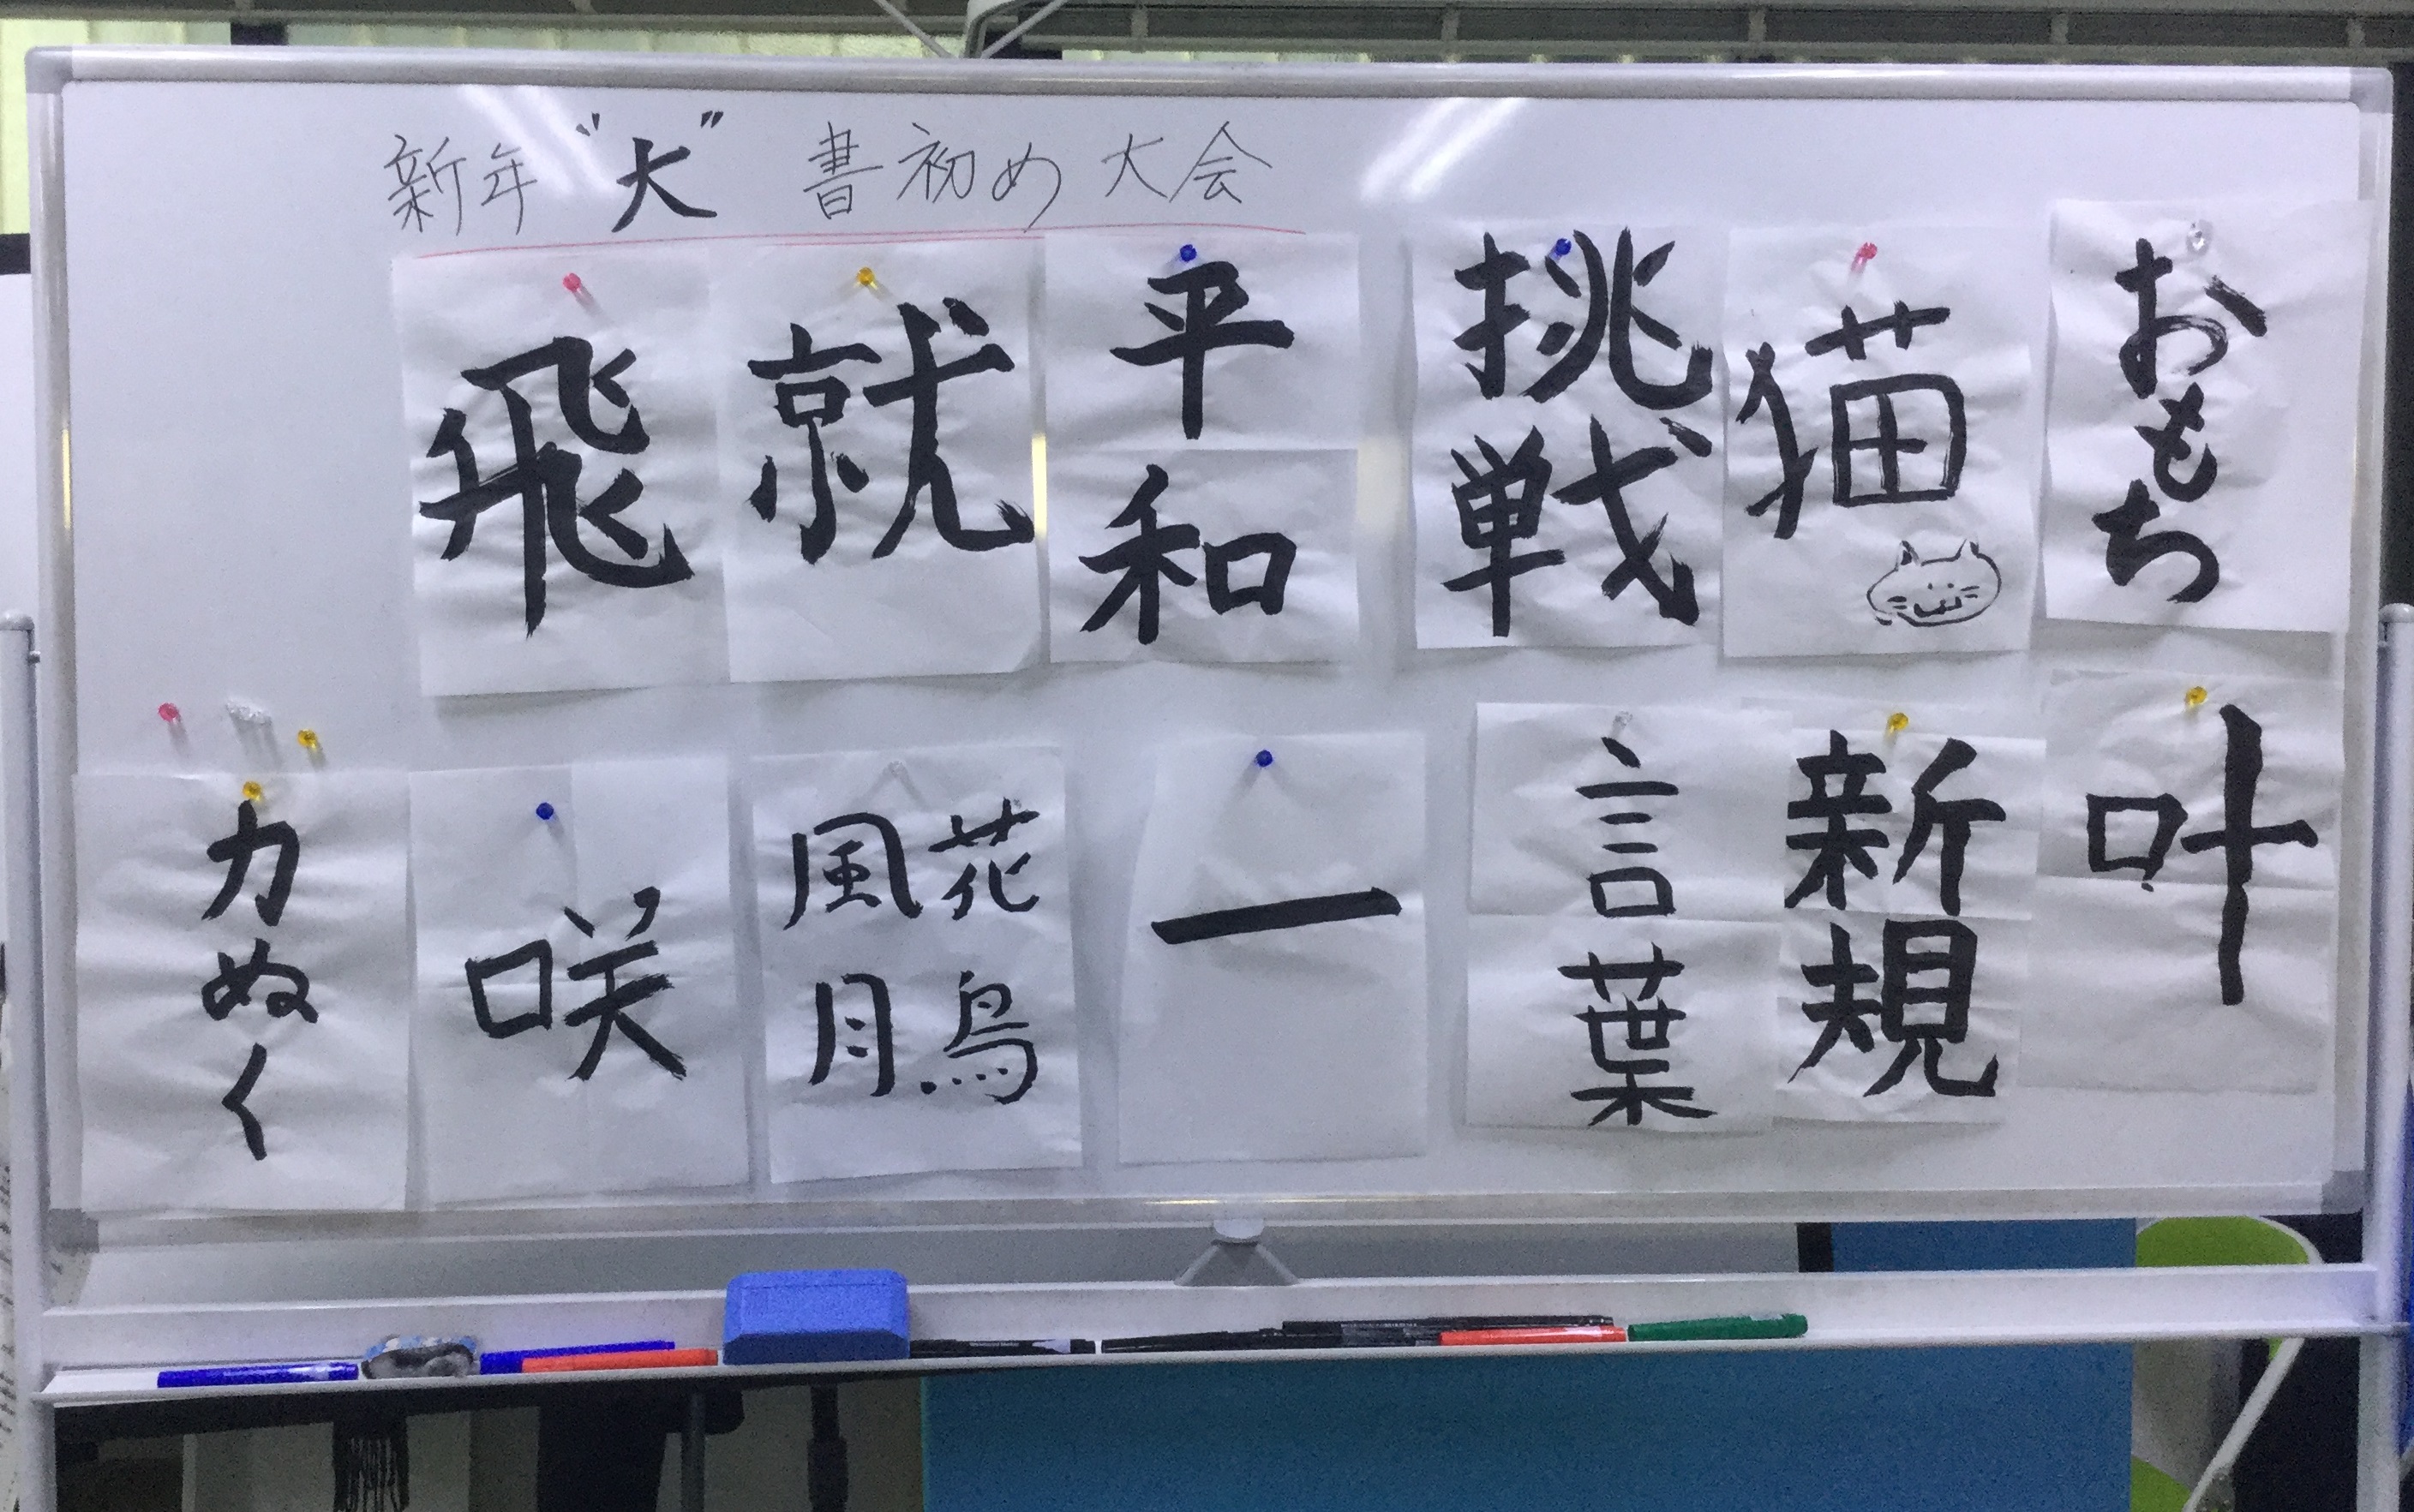 新年"大"書初め大会
おもち
猫
挑戦
平和
就
飛
叶
新規
言葉
一
花鳥
風月
咲
力ぬく